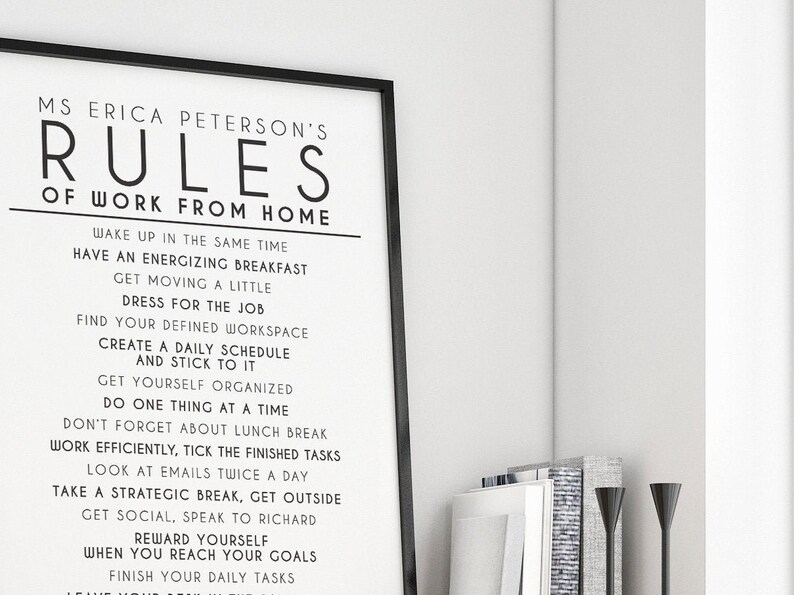 MS ERICA PETERSON'S
RULES
OF WORK FROM HOME
WAKE UP IN THE SAME TIME
HAVE AN ENERGIZING BREAKFAST
GET MOVING A LITTLE
DRESS FOR THE JOB
FIND YOUR DEFINED WORKSPACE
CREATE A DAILY SCHEDULE
AND STICK TO IT
GET YOURSELF ORGANIZED
DO ONE THING AT A TIME
DON'T FORGET ABOUT LUNCH BREAK
WORK EFFICIENTLY, TICK THE FINISHED TASKS
LOOK AT EMAILS TWICE A DAY
TAKE A STRATEGIC BREAK, GET OUTSIDE
GET SOCIAL, SPEAK TO RICHARD
REWARD YOURSELF
WHEN YOU REACH YOUR GOALS
FINISH YOUR DAILY TASKS
LEAVE YOUR DESK IN THE